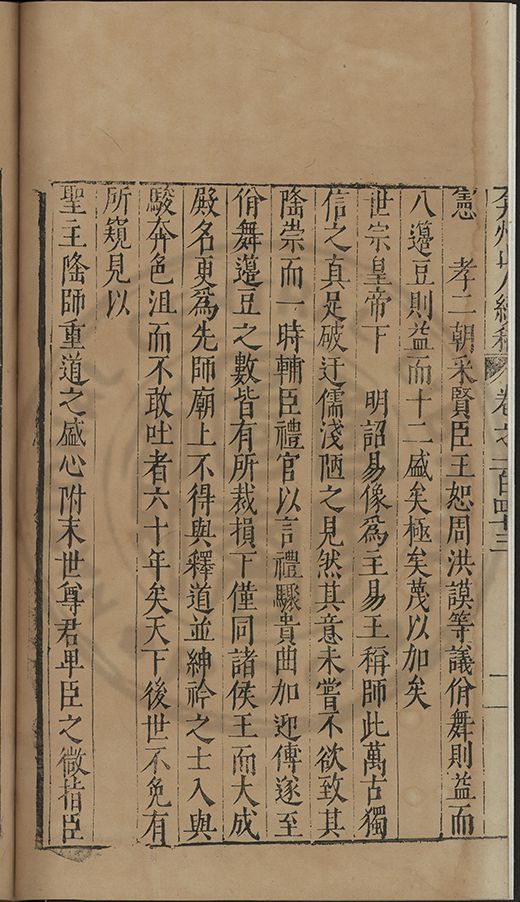 弇州山人續稿 卷之一百四十三 二
憲 孝二朝采賢臣王恕周洪謨等議佾舞則益而
八籩豆則益而十二盛矣極矣蔑以加矣
世宗皇帝下 明詔易像爲主易王稱師此萬古獨
信之真足破迂儒淺陋之見然其意未嘗不欲致其
隆崇而一時輔臣禮官以言禮驟貴曲加迎傅遂至
佾舞籩豆之數皆有所裁損下僅同諸侯王而大成
殿名更爲先師廟上不得與釋道並紳衿之士入與
駿奔色沮而不敢吐者六十年矣天下後世不免有
所窺見以
聖王隆師重道之盛心附末世尊君卑臣之微指臣